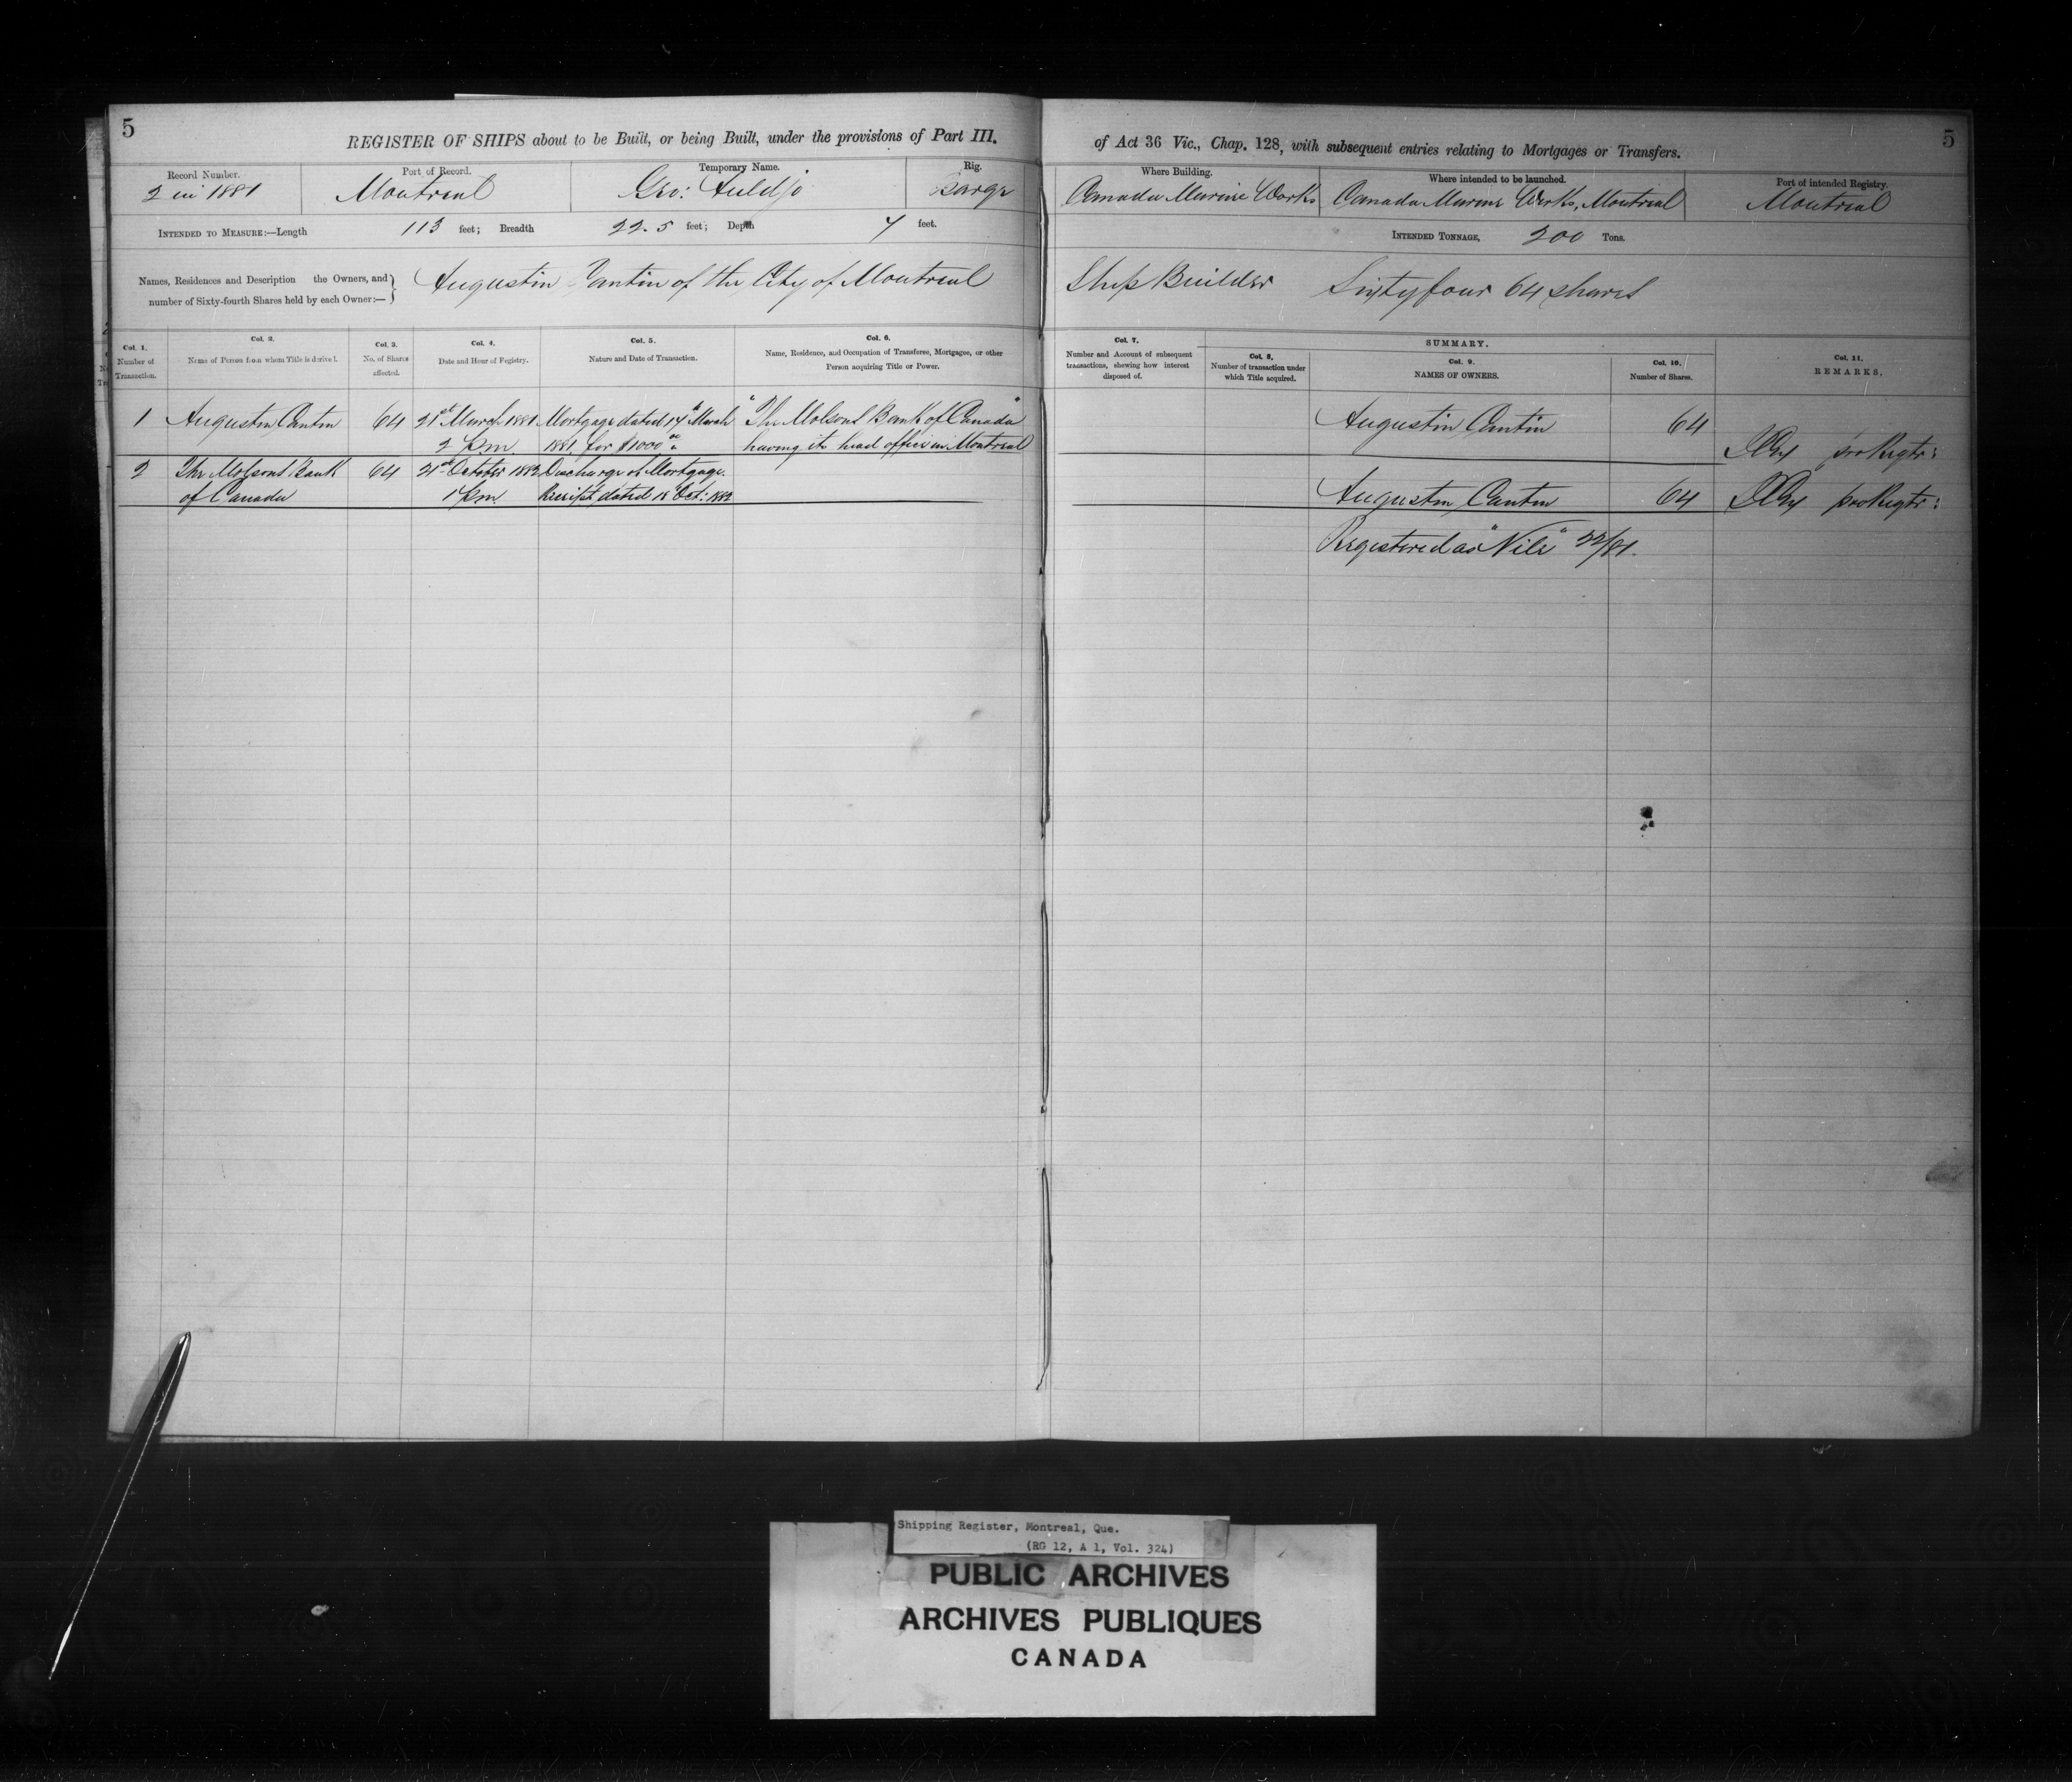 5
REGISTER OF SHIPS about to be Built, or being Built, under the provisions of Part III. of Act 36 Vic., Chap. 128, with subsequent entries relating to Mortgages or Transfers.
5
Record Number.
2 in 1881
Port of Record.
Montreal
Temporary Name.
Geo: Auldjo
Rig.
Barge
Where Building.
Canada Marine Works
Where intended to be launched.
Canada Marine Works, Montreal
Port of intended Registry.
Montreal
INTENDED TO MEASURE:—Length 113 feet; Breadth 22.5 feet; Depth 7 feet.
INTENDED TONNAGE, 200 Tons.
Names, Residences and Description the Owners, and
number of Sixty-fourth Shares held by each Owner:—
Augustin Cantin of the City of Montreal Ship Builder Sixty four 64 shares
Col. 1.
Number of
Transaction.
Col. 2.
Name of Person from whom Title is derived.
Col. 3.
No. of Shares
affected.
Col. 4.
Date and Hour of Registry.
Col. 5.
Nature and Date of Transaction.
Col. 6.
Name, Residence, and Occupation of Transferee, Mortgagee, or other
Person acquiring Title or Power.
Col. 7.
Number and Account of subsequent
transactions, shewing how interest
disposed of.
SUMMARY.
Col. 8.
Number of transaction under
which Title acquired.
Col. 9.
NAMES OF OWNERS.
Col. 10.
Number of Shares.
Col. 11.
REMARKS.
1 Augustin Cantin 64 21st March 1881 Mortgage dated 14th March "The Molsons Bank of Canada" Augustin Cantin 64
2 p.m. 1881, for $1000 having its head office in Montreal pro Regtr:
2 The Molsons Bank 64 21st October 1882 Discharge of Mortgage.
of Canada 1 p.m. Receipt dated 18 Oct: 1882 Augustin Cantin 64 pro Regtr:
Registered as "Nile" 22/81.
Shipping Register, Montreal, Que.
(RG 12, A 1, Vol. 324)
PUBLIC ARCHIVES
ARCHIVES PUBLIQUES
CANADA